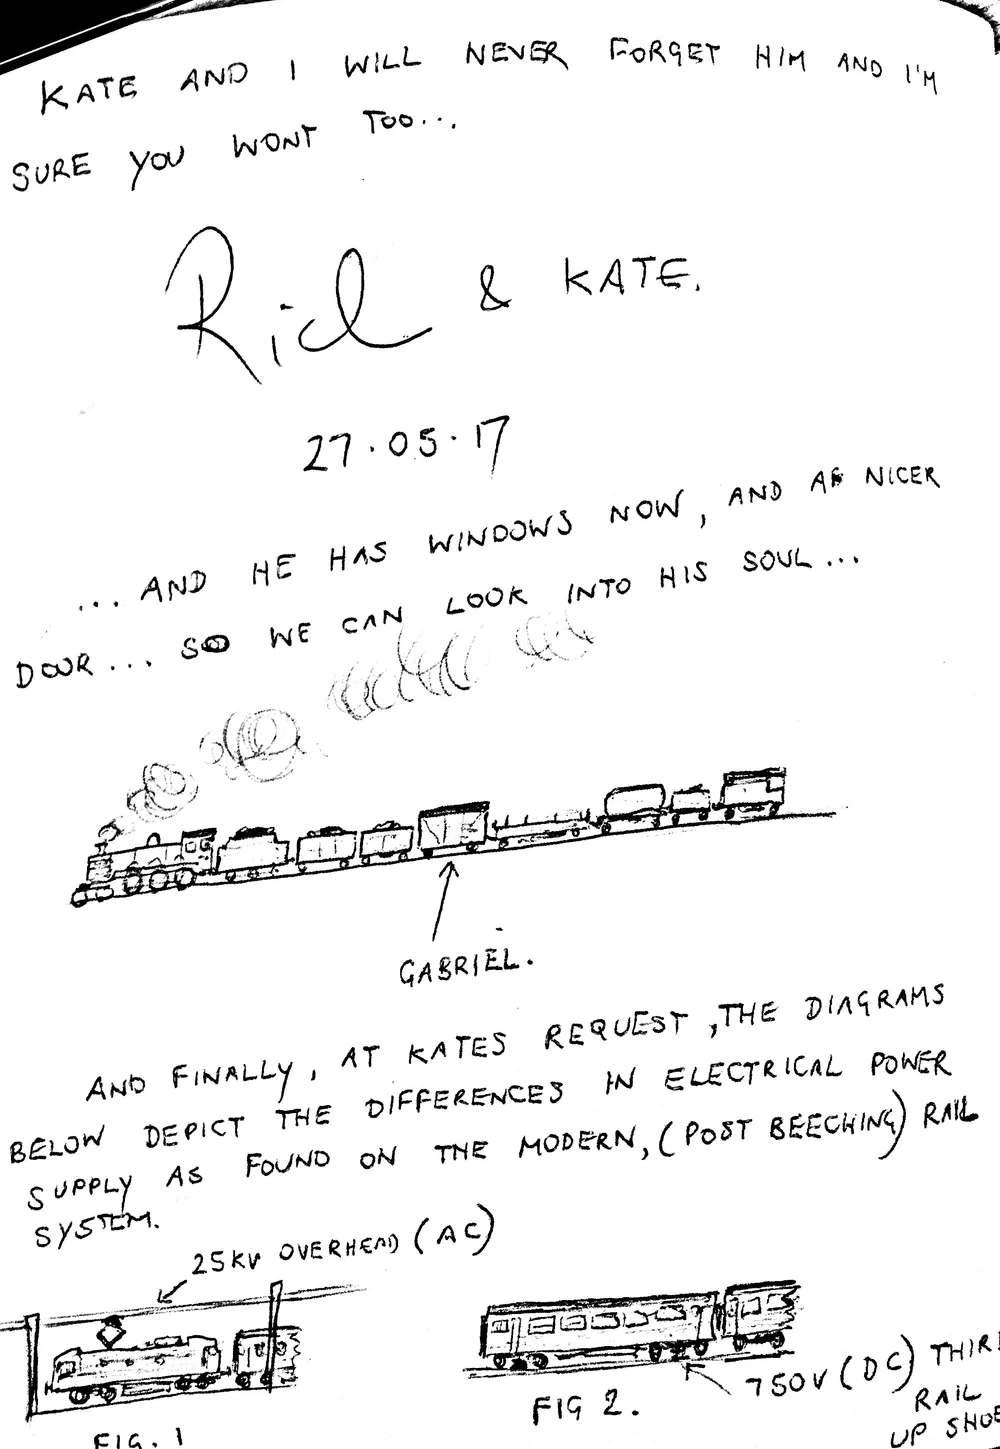 KATE AND I WILL NEVER FORGET HIM AND I'M
SURE YOU WONT TOO...
& KATE.
27.05.17
... AND HE HAS WINDOWS NOW, AND A NICER
DOOR... SO WE CAN LOOK INTO HIS SOUL...
GABRIEL.
AND FINALLY, AT KATES REQUEST, THE DIAGRAMS
BELOW DEPICT THE DIFFERENCES IN ELECTRICAL POWER
SUPPLY AS FOUND ON THE MODERN, (POST BEECHING) RAIL
SYSTEM.
25KV OVERHEAD (AC)
750V (DC) THIRD
RAIL
UP SHOE
FIG. 1
FIG 2.